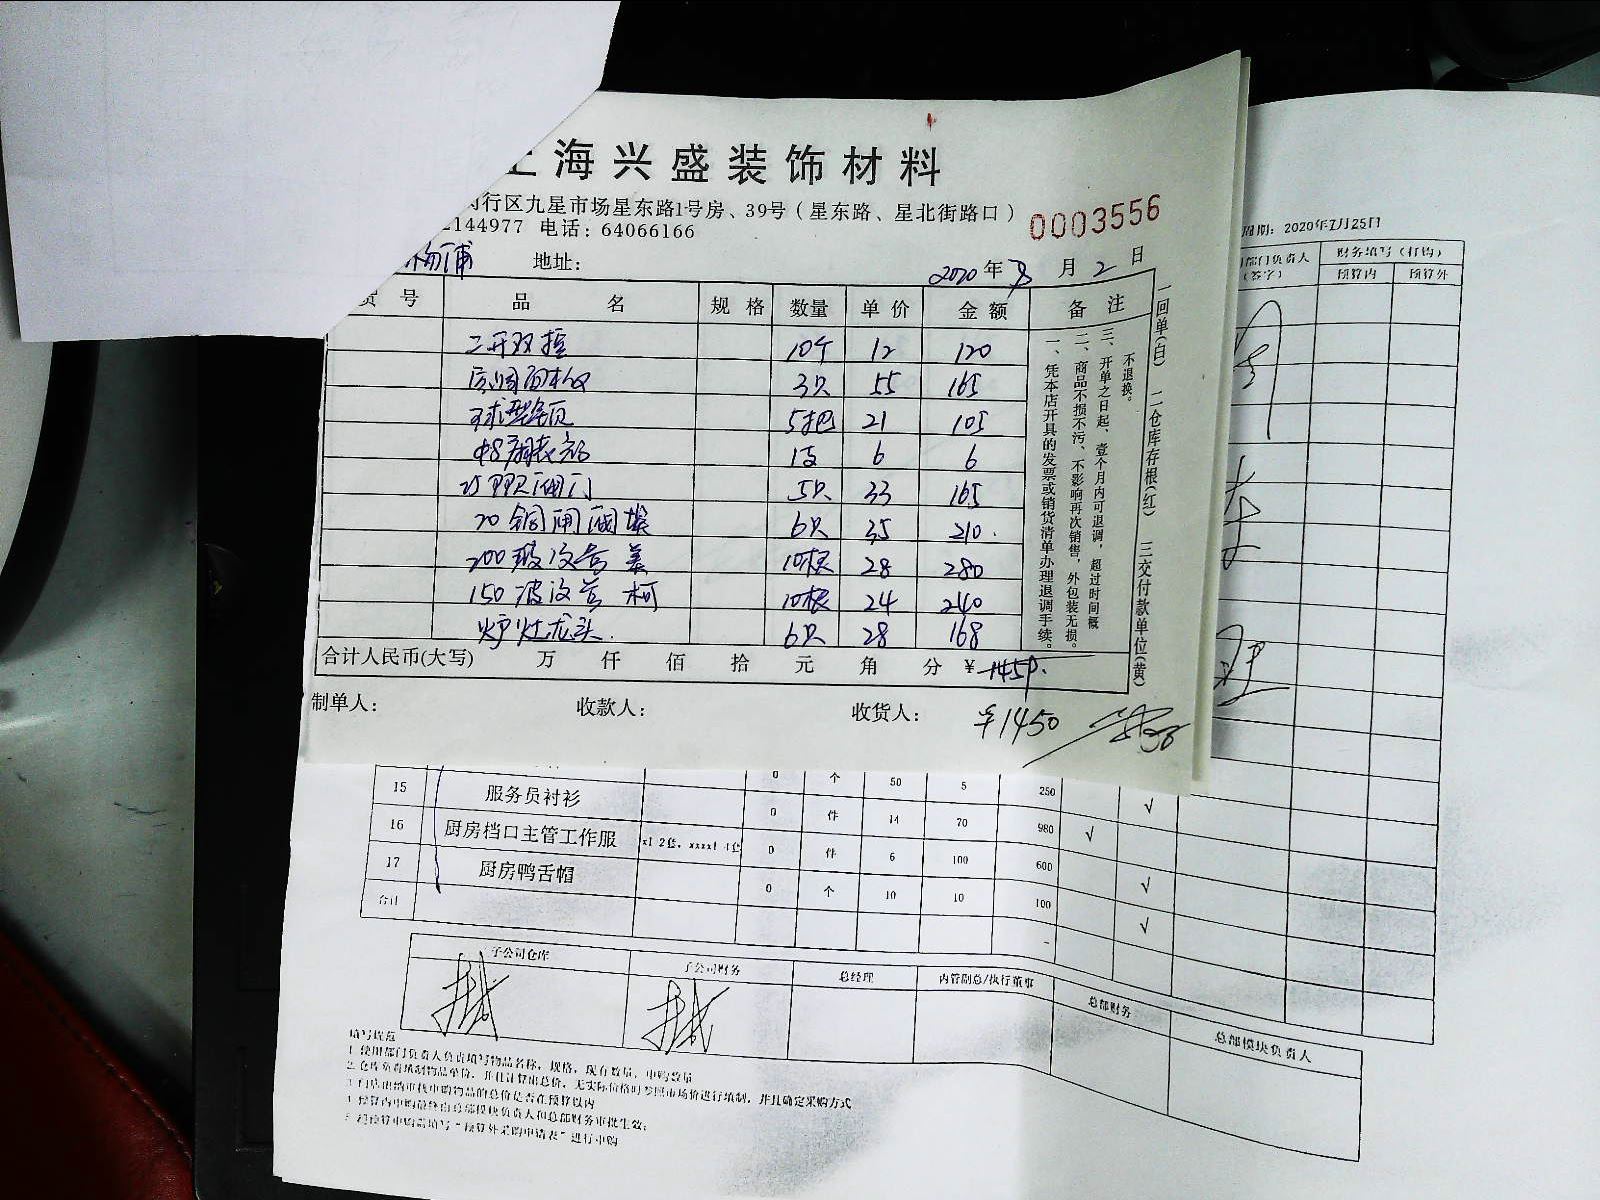 上海兴盛装饰材料
闵行区九星市场星东路1号房、39号（星东路、星北街路口）
2144977 电话：64066166
0003556
杨浦 地址：
2020年8月2日
货号 品名 规格 数量 单价 金额 备注
二开双控 10个 12 120
空调面板 3只 55 165
球型锁 5把 21 105
1支 6 6
25 闸门 5只 33 165
20铜闸阀 6只 35 210.
200 10根 28 280
150 10根 24 240
炉灶龙头. 6只 28 168
一、凭本店开具的发票或销货清单办理退调手续。
二、商品不损不污、不影响再次销售，外包装无损。
三、开单之日起，壹个月内可退调，超过时间概
不退换。
一回单(白) 二仓库存根(红) 三交付款单位(黄)
合计人民币(大写) 万 仟 佰 拾 元 角 分 ¥1459.
制单人： 收款人： 收货人： ¥1450
日期：2020年7月25日
部门负责人（签字） 财务填写（打钩）
预算内 预算外
0 个 50 5 250 √
15 服务员衬衫 0 件 14 70 980 √
16 厨房档口主管工作服 0 件 6 100 600 √
17 厨房鸭舌帽 0 个 10 10 100 √
合计 -
子公司仓库 子公司财务 总经理 内管副总/执行董事 总部财务 总部模块负责人
填写规范
1.使用部门负责人负责填写物品名称，规格，现有数量，申购数量
2.仓库负责填制物品单价，并且计算出总价，无实际价格时参照市场价进行填制，并且确定采购方式
3.门店出纳审核申购物品的总价是否在预算以内
4.预算内申购最终由总部模块负责人和总部财务审批生效；
5.超预算申购需填写“预算外采购申请表”进行申购